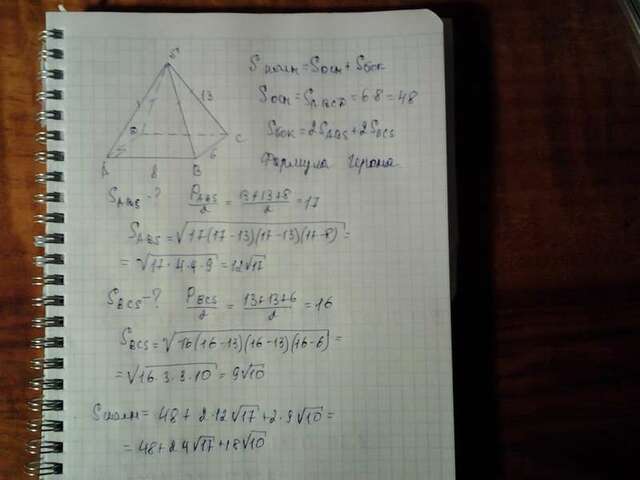 S
13
D
C
A
8
B
6
Sполн = Sосн + Sбок
Sосн = S_ABCD = 6·8 = 48
Sбок = 2S_ABS + 2S_BCS
Формула Герона
S_ABS - ? P_ABS/2 = (13+13+8)/2 = 17
S_ABS = √(17(17-13)(17-13)(17-8)) =
= √(17·4·4·9) = 12√17
S_BCS - ? P_BCS/2 = (13+13+6)/2 = 16
S_BCS = √(16(16-13)(16-13)(16-6)) =
= √(16·3·3·10) = 9√10
Sполн = 48 + 2·12√17 + 2·9√10 =
= 48 + 24√17 + 18√10